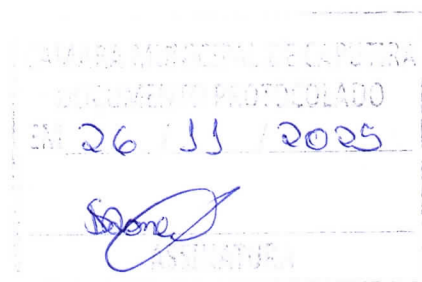 CÂMARA MUNICIPAL DE CAPUTIRA
DOCUMENTO PROTOCOLADO
EM 26 11 2025
ASSINATURA